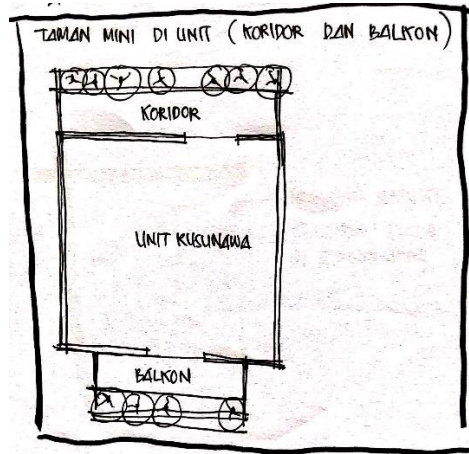 TAMAN MINI DI UNIT (KORIDOR DAN BALKON)
KORIDOR
UNIT KUSUNAWA
BALKON